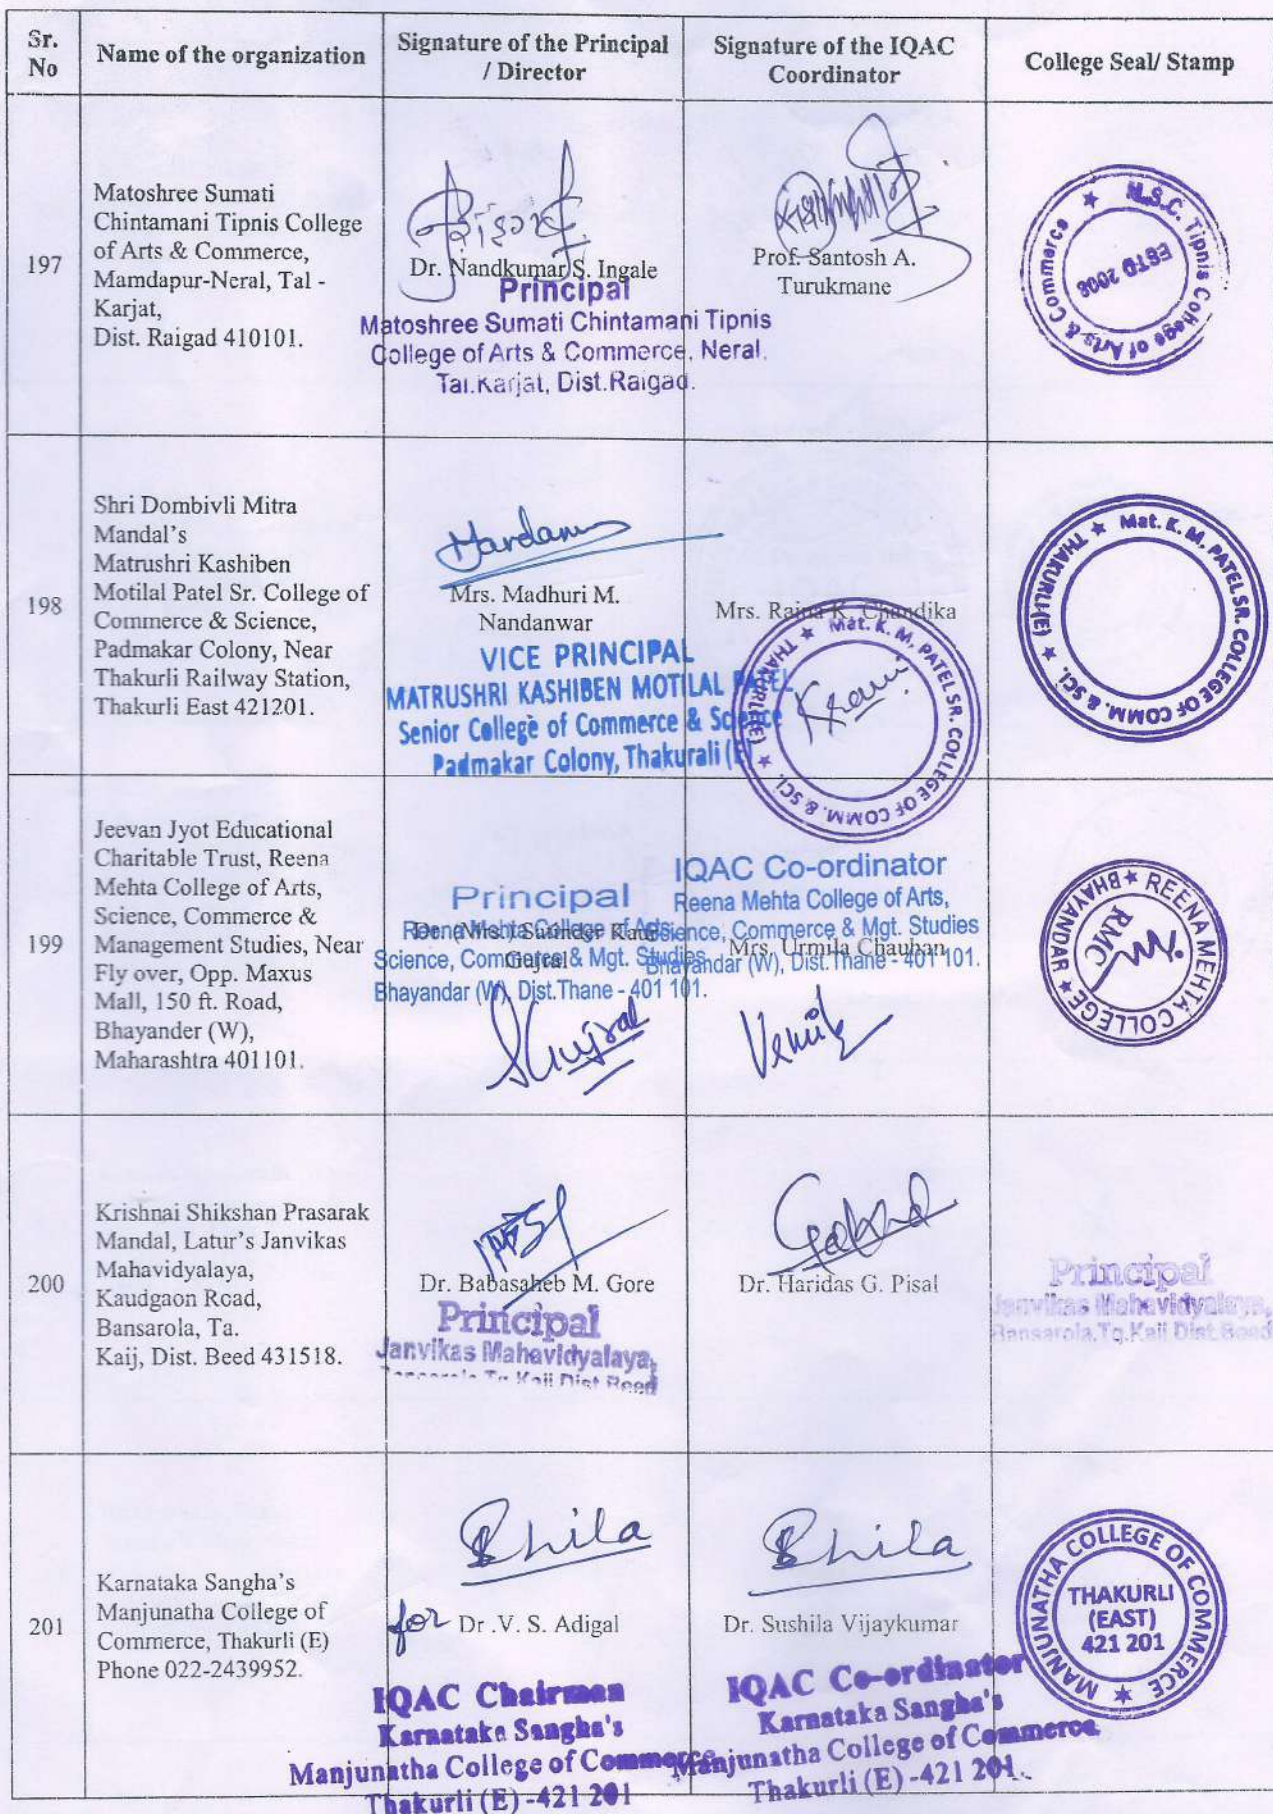 Sr. No
Name of the organization
Signature of the Principal / Director
Signature of the IQAC Coordinator
College Seal/ Stamp
197
Matoshree Sumati
Chintamani Tipnis College
of Arts & Commerce,
Mamdapur-Neral, Tal -
Karjat,
Dist. Raigad 410101.
Dr. Nandkumar S. Ingale
Principal
Matoshree Sumati Chintamani Tipnis
College of Arts & Commerce, Neral.
Tal.Karjat, Dist.Raigad.
Prof. Santosh A.
Turukmane
M.S.C. Tipnis College of Arts & Commerce ★
ESTD 2008
198
Shri Dombivli Mitra
Mandal's
Matrushri Kashiben
Motilal Patel Sr. College of
Commerce & Science,
Padmakar Colony, Near
Thakurli Railway Station,
Thakurli East 421201.
Mrs. Madhuri M.
Nandanwar
VICE PRINCIPAL
MATRUSHRI KASHIBEN MOTILAL PATEL
Senior College of Commerce & Science
Padmakar Colony, Thakurali (E)
Mrs. Raina K. Chandika
★ Mat. K. M. PATEL SR. COLLEGE OF COMM. & SCI. ★ THAKURLI(E)
★ Mat. K. M. PATEL SR. COLLEGE OF COMM. & SCI. ★ THAKURLI(E)
199
Jeevan Jyot Educational
Charitable Trust, Reena
Mehta College of Arts,
Science, Commerce &
Management Studies, Near
Fly over, Opp. Maxus
Mall, 150 ft. Road,
Bhayander (W),
Maharashtra 401101.
Principal
Reena Mehta College of Arts,
Science, Commerce & Mgt. Studies
Bhayandar (W), Dist.Thane - 401 101.
Dr. (Mrs.) Satinder Kaur
Gujral
SGujral
IQAC Co-ordinator
Reena Mehta College of Arts,
Science, Commerce & Mgt. Studies
Bhayandar (W), Dist.Thane - 401 101.
Mrs. Urmila Chauhan
★ REENA MEHTA COLLEGE ★ BHAYANDAR
RMC
200
Krishnai Shikshan Prasarak
Mandal, Latur's Janvikas
Mahavidyalaya,
Kaudgaon Road,
Bansarola, Ta.
Kaij, Dist. Beed 431518.
Dr. Babasaheb M. Gore
Principal
Janvikas Mahavidyalaya,
Bansarola Tq Kaij Dist Beed
Dr. Haridas G. Pisal
Principal
Janvikas Mahavidyalaya,
Bansarola,Tq.Kaij Dist.Beed
201
Karnataka Sangha's
Manjunatha College of
Commerce, Thakurli (E)
Phone 022-2439952.
Shila
for Dr .V. S. Adigal
IQAC Chairman
Karnataka Sangha's
Manjunatha College of Commerce
Thakurli (E) -421 201
Shila
Dr. Sushila Vijaykumar
IQAC Co-ordinator
Karnataka Sangha's
Manjunatha College of Commerce
Thakurli (E) -421 201.
MANJUNATHA COLLEGE OF COMMERCE ★
THAKURLI
(EAST)
421 201